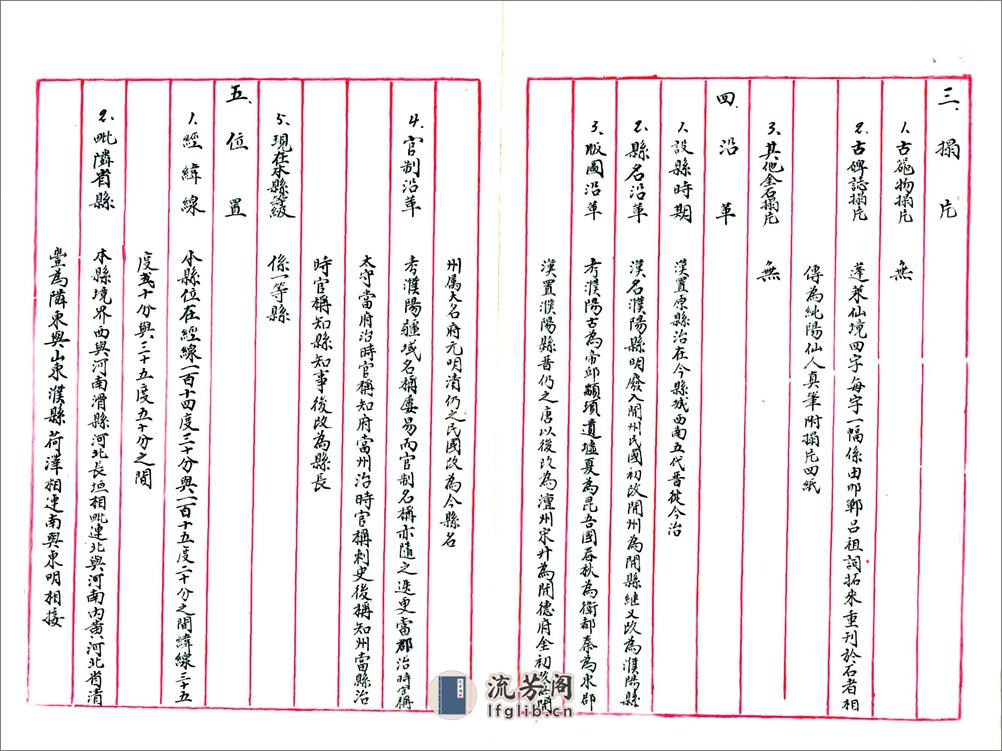 三、搨片
1、古器物搨片 無
2、古碑誌搨片 蓬萊仙境四字每字一隔係由邯鄲呂祖詞拓來重刊於石者相
傳為純陽仙人真筆附搨片四紙
3、其他金石搨片 無
四、沿革
1、設縣時期 漢置原縣治在今縣城西南五代晉徙今治
2、縣名沿革 漢名濮陽縣明廢入開州民國初改開州為開縣繼又改為濮陽縣
3、版圖沿革 考濮陽古為帝邱顓頊遺墟夏為昆吾國春秋為衛都秦為東郡
漢置濮陽縣晉仍之唐以後改為澶州宋升為開德府金初改為開
州屬大名府元明清仍之民國改為今縣名
4、官制沿革 考濮陽疆域名稱屢易而官制名稱亦隨之迭更當郡治時官稱
太守當府治時官稱知府當州治時官稱刺史後稱知州當縣治
時官稱知縣知事後改為縣長
5、現在本縣等級 係一等縣
五、位置
1、經緯線 本縣位在經線一百十四度三十分與一百十五度二十分之間緯線三十五
度式十分與三十五度五十分之間
2、毗隣省縣 本縣境界西與河南滑縣河北長垣相毗連北與河南內黃河北省清
豐為隣東與山東濮縣荷澤相連南與東明相接
流芳阁
lfglib.cn